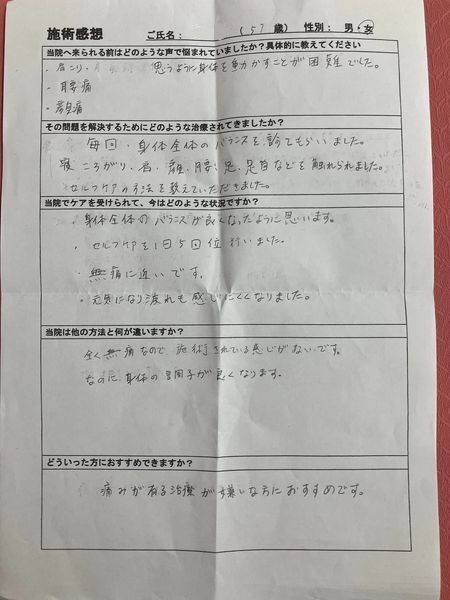 施術感想 ご氏名: (57 歳) 性別: 男・女
当院へ来られる前はどのような声で悩まれていましたか?具体的に教えてください
・肩こり、 思うように身体を動かすことが困難でした。
・腰痛
・頭痛
その問題を解決するためにどのような治療されてきましたか?
毎回、身体全体のバランスを診てもらいました。
寝ころがり、肩、腰、足、足首などを触れられました。
セルフケアの方法を教えていただきました。
当院でケアを受けられて、今はどのような状況ですか?
・身体全体のバランスが良くなったように思います。
・セルフケアを1日5回位行いました。
・無痛に近いです。
・元気になり疲れも感じにくくなりました。
当院は他の方法と何が違いますか?
全く無痛なので施術されている感じがないです。
なのに、身体の調子が良くなります。
どういった方におすすめできますか?
痛みが有る治療が嫌いな方におすすめです。